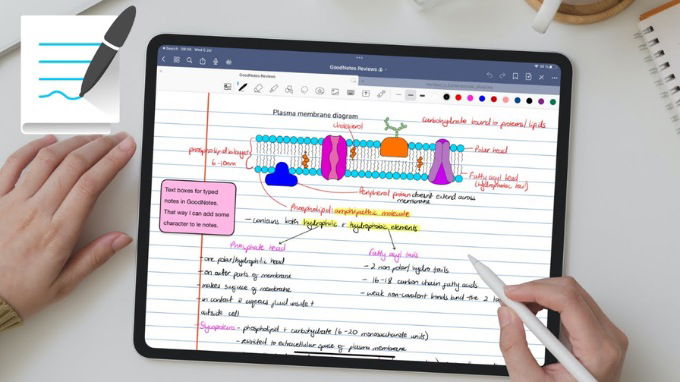 GoodNotes Reviews
GoodNotes Reviews
Plasma membrane diagram
Cholesterol
carbohydrate bound to proteins/lipids
Polar head
phospholipid bilayer
6-10nm
Fatty acyl head
(hydrophobic tail)
Peripheral protein doesn't extend across
membrane
Text boxes for typed
notes in GoodNotes.
That way I can add some
character to ie notes.
Phospholipid: amphipathic molecule
- contains both hydrophilic & hydrophobic elements
Phosphate head
Fatty acyl tails
- one polar/hydrophilic head
- 2 non polar/hydro tails
- on outer parts of membrane
- 16-18 carbon chain fatty acids
- makes surface of membrane
- weak non-covalent bonds bind the 2
- in contact & aqueous fluid inside +
outside cell
- Glycoproteins - phospholipid + carbohydrate (6-20 monosaccharide units)
- restricted to extracellular space of plasma membrane